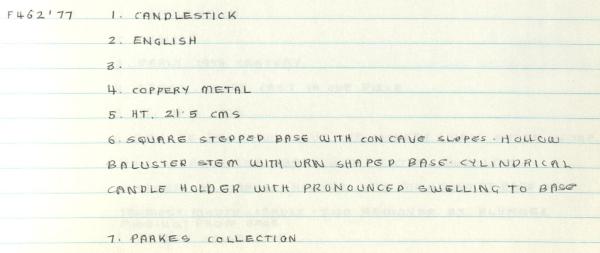 F462'77 1. CANDLESTICK
2. ENGLISH
3.
4. COPPERY METAL
5. HT. 21·5 cms
6. SQUARE STEPPED BASE WITH CONCAVE SLOPES. HOLLOW
BALUSTER STEM WITH URN SHAPED BASE. CYLINDRICAL
CANDLE HOLDER WITH PRONOUNCED SWELLING TO BASE
7. PARKES COLLECTION